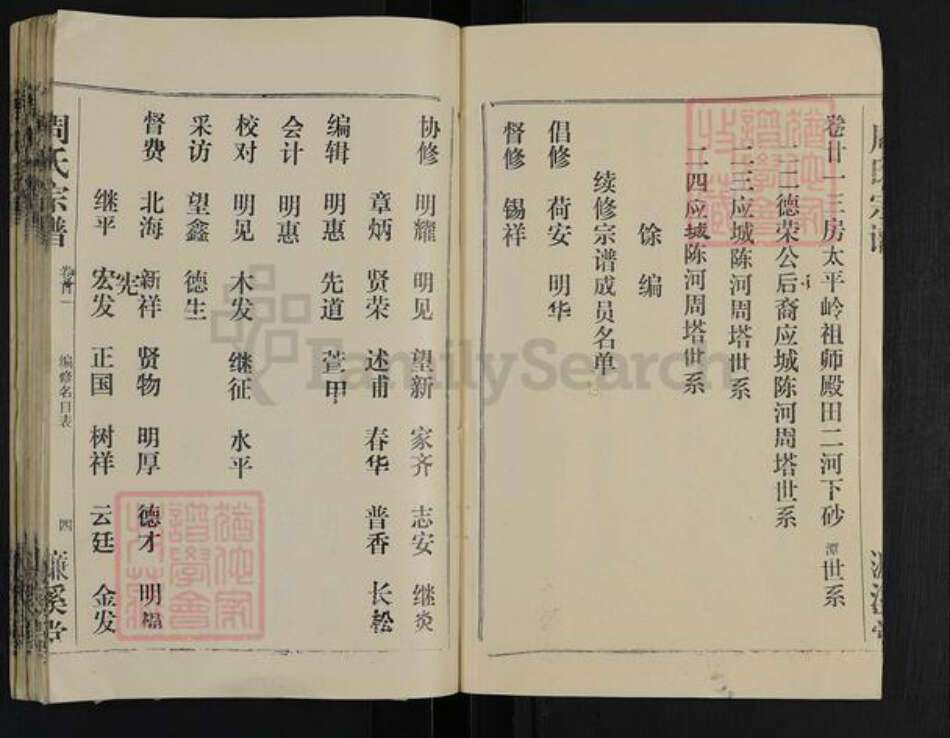 卷廿一三房太平岭祖师殿田二河下砂潭世系
二二德荣公后裔应城陈河周塔世系
二三应城陈河周塔世系
二四应城陈河周塔世系
馀编
续修宗谱成员名单
倡修 荷安 明华
督修 锡祥
协修 明耀 明见 望新 家齐 志安 继炎
章炳 贤荣 述甫 春华 普香 长松
编辑 明惠 先道 萱甲
会计 明惠
校对 明见 木发 继征 水平
采访 望鑫 德生
督费 北海 新祥 贤物 明厚 德才 明
继平 宏发 正国 树祥 云廷 金发
宪
周氏宗谱 卷首一 编修名目表 四 濂溪堂
FamilySearch